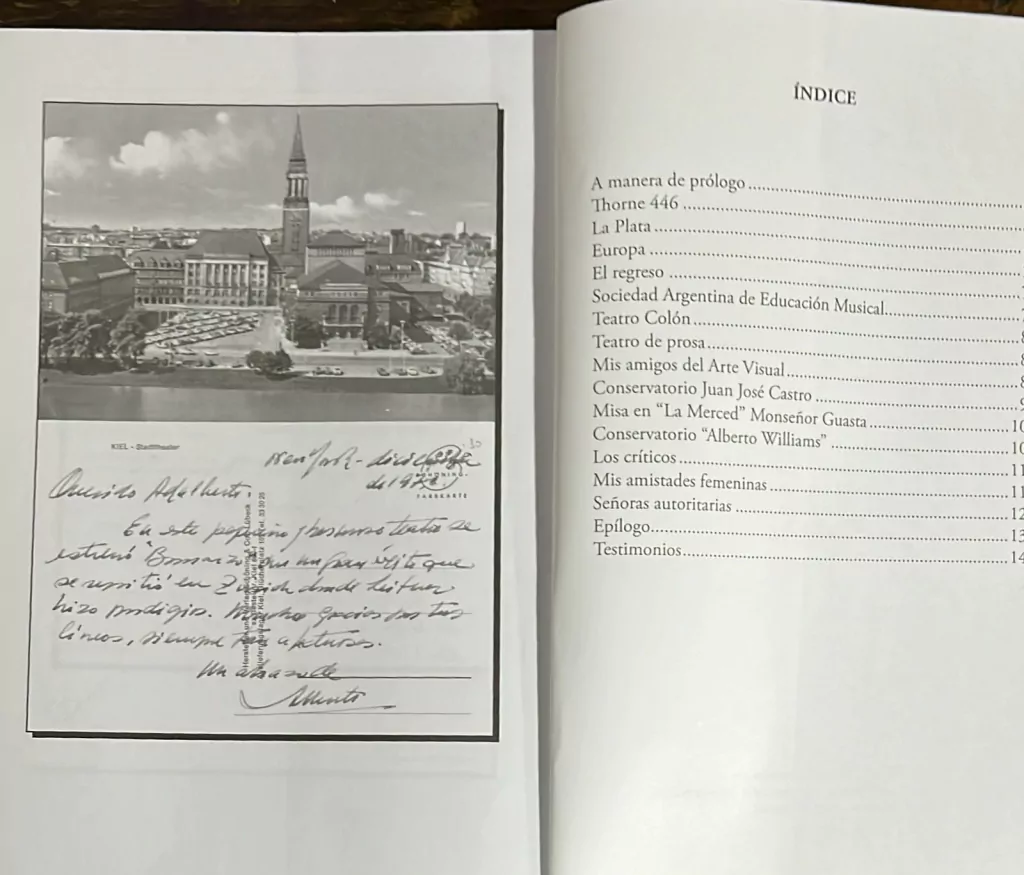 KIEL - Stadttheater
New York - diciembre
de 19
Querido Adalberto:
En este pequeño y hermoso teatro se
estrenó "Bomarzo" con un gran éxito que
se repitió en Zürich donde Leitner
hizo prodigios. Muchas gracias por tus
líneas, siempre tan afectuosas.
Un abrazo de
Alberto
FARBKARTE
ÍNDICE
A manera de prólogo
Thorne 446
La Plata
Europa
El regreso
Sociedad Argentina de Educación Musical
Teatro Colón
Teatro de prosa
Mis amigos del Arte Visual
Conservatorio Juan José Castro
Misa en "La Merced" Monseñor Guasta
Conservatorio "Alberto Williams"
Los críticos
Mis amistades femeninas
Señoras autoritarias
Epílogo
Testimonios